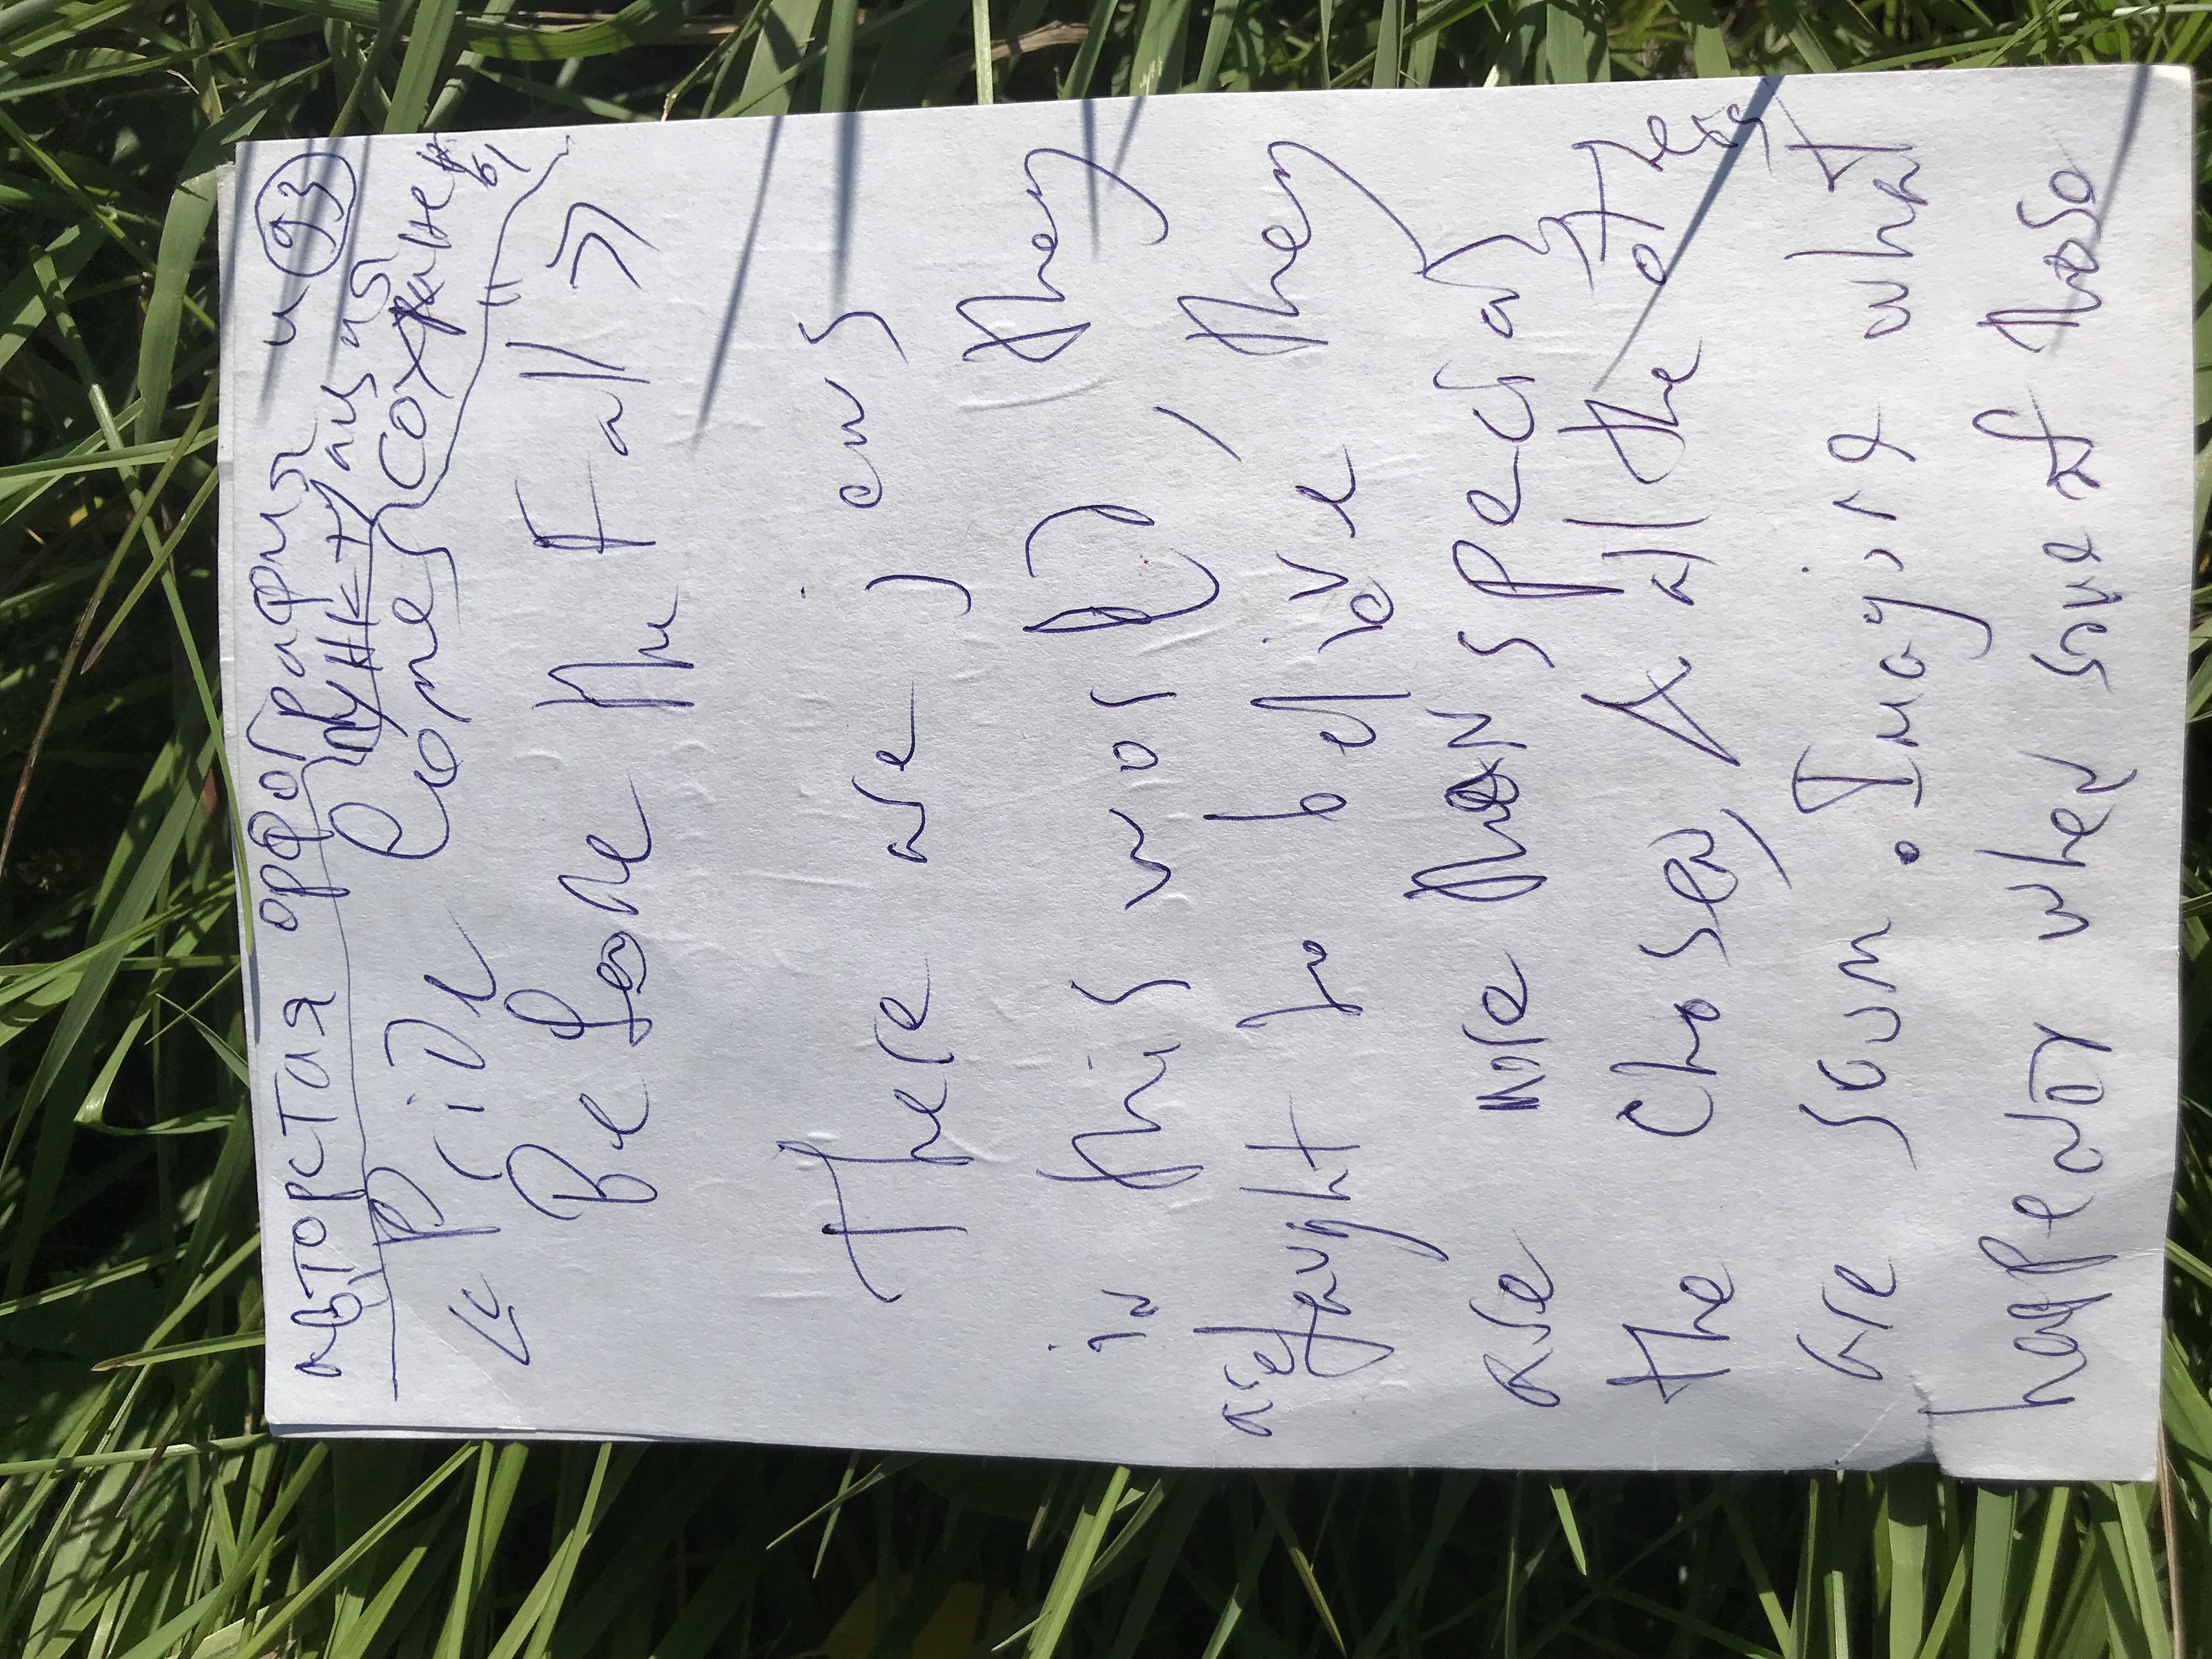 авторстая орфография и 93
пунктуация
сохранены
«Pride Comes
Before the Fall»
There are jews
in this world, they
are taught to belive they
are more than special,
the Chosen, & all the others
are scum. Imagine what
when some of those